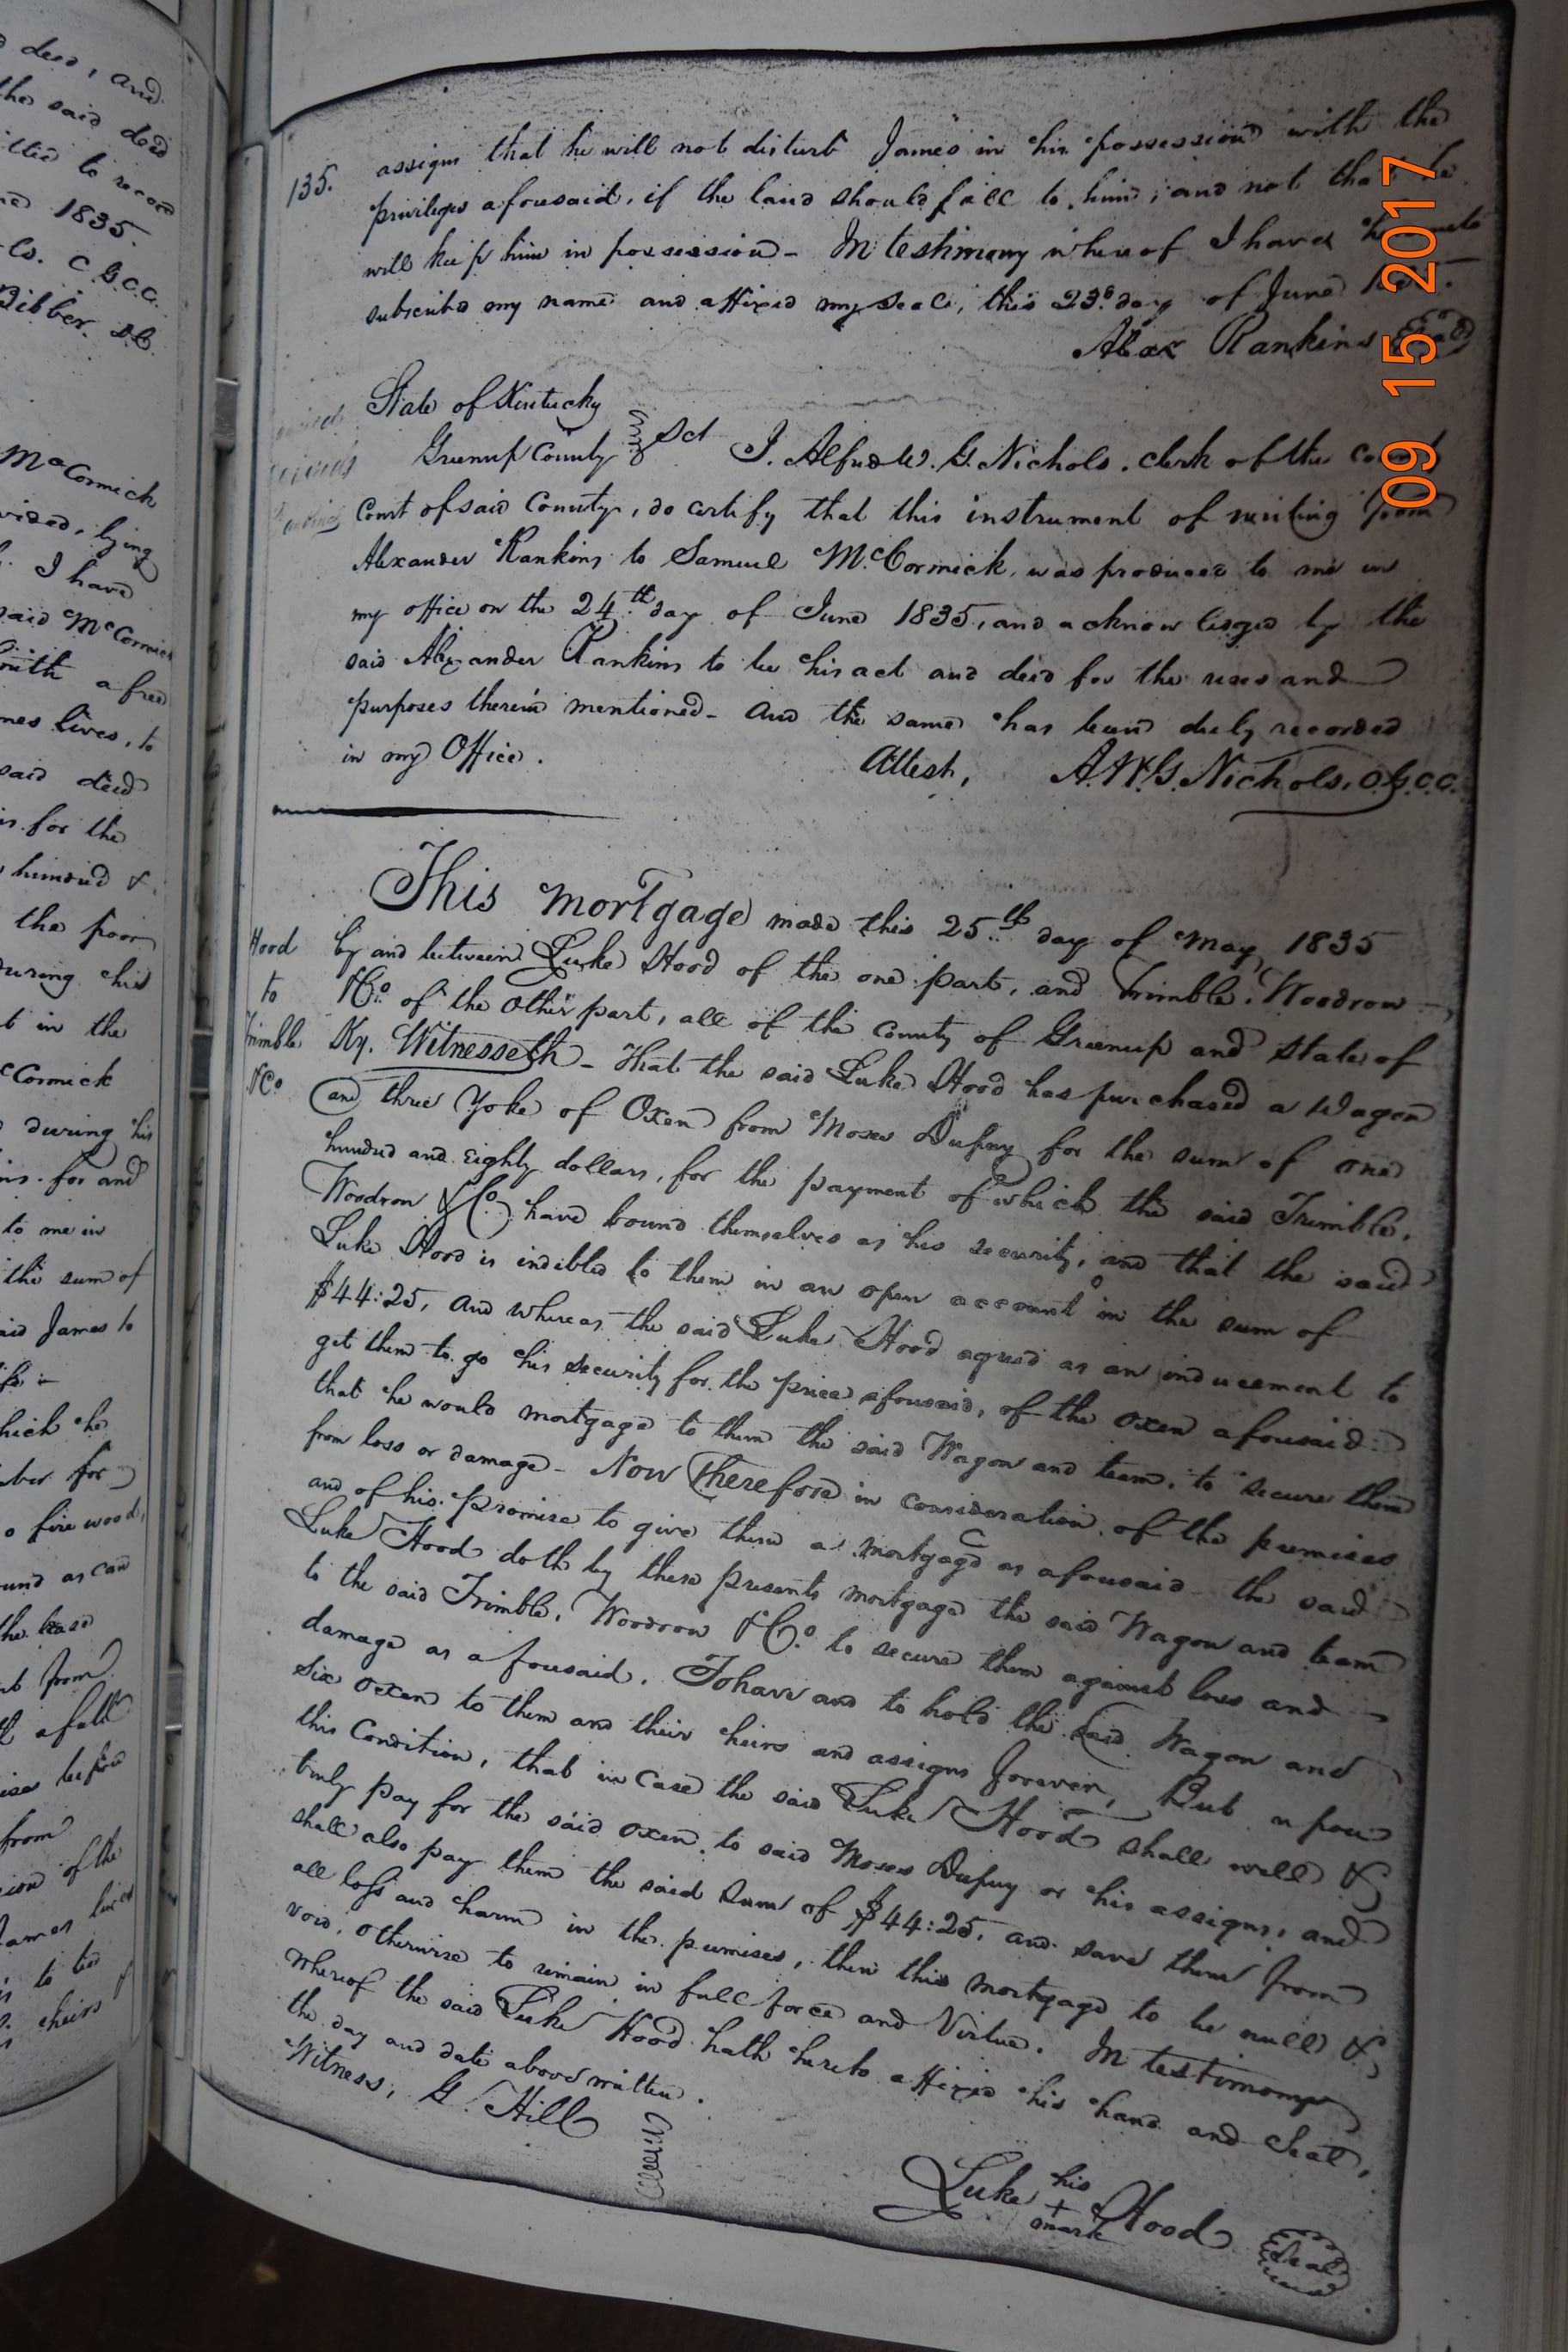 deed, and
the said deed
to record
1835.
Co. C.G.C.C.
Bibber. D.C.
McCormick
lying
I have
said McCormick
South a free
lives, to
said deed
for the
hundred &
the poor
during his
in the
McCormick
during his
for and
to me in
the sum of
said James to
life
which he
for
fire wood,
as can
the lease
from
a full
before
from
of the
James lives
to the
heirs &
135.
assigns that he will not disturb James in his possession with the
privileges aforesaid, if the land should fall to him, and not that he
will keep him in possession - In testimony whereof I have hereunto
subscribed my name and affixed my seal, this 23d day of June
Alex Rankins Seal
State of Kentucky
Greenup County Sct I. Alfred W. G. Nichols, clerk of the county
Court of said County, do certify that this instrument of writing from
Alexander Rankins to Samuel McCormick, was produced to me in
my office on the 24th day of June 1835, and acknowledged by the
said Alexander Rankins to be his act and deed for the uses and
purposes therein mentioned - And the same has been duly recorded
in my Office. Attest, A.W.G. Nichols, C.G.C.C.
This Mortgage made this 25th day of May 1835
Hood
to
Trimble
&Co
by and between Luke Hood of the one part, and Trimble, Woodrow
&Co. of the other part, all of the County of Greenup and State of
Ky. Witnesseth - That the said Luke Hood has purchased a Wagon
and three Yoke of Oxen from Moses Dupuy for the sum of one
hundred and Eighty dollars, for the payment of which the said Trimble,
Woodrow & Co. have bound themselves as his security, and that the said
Luke Hood is indebted to them in an open account in the sum of
$44:25, And whereas the said Luke Hood agreed as an inducement to
get them to go his security for the price aforesaid, of the oxen aforesaid:
that he would mortgage to them the said Wagon and team, to secure them
from loss or damage - Now Therefore in consideration of the premises
and of his promise to give them a mortgage as aforesaid the said
Luke Hood doth by these presents mortgage the said Wagon and team
to the said Trimble, Woodrow & Co. to secure them against loss and
damage as aforesaid. To have and to hold the said Wagon and
Six oxen to them and their heirs and assigns forever, But upon
this Condition, that in Case the said Luke Hood shall well &
truly pay for the said oxen, to said Moses Dupuy or his assigns, and
shall also pay them the said Sum of $44:25, and save them from
all loss and harm in the premises, then this mortgage to be null &
void, otherwise to remain in full force and Virtue. In testimony
whereof the said Luke Hood hath hereto affixed his hand and Seal,
the day and date above written.
Witness, G. Hill
Luke his + mark Hood Seal
09 15 2017